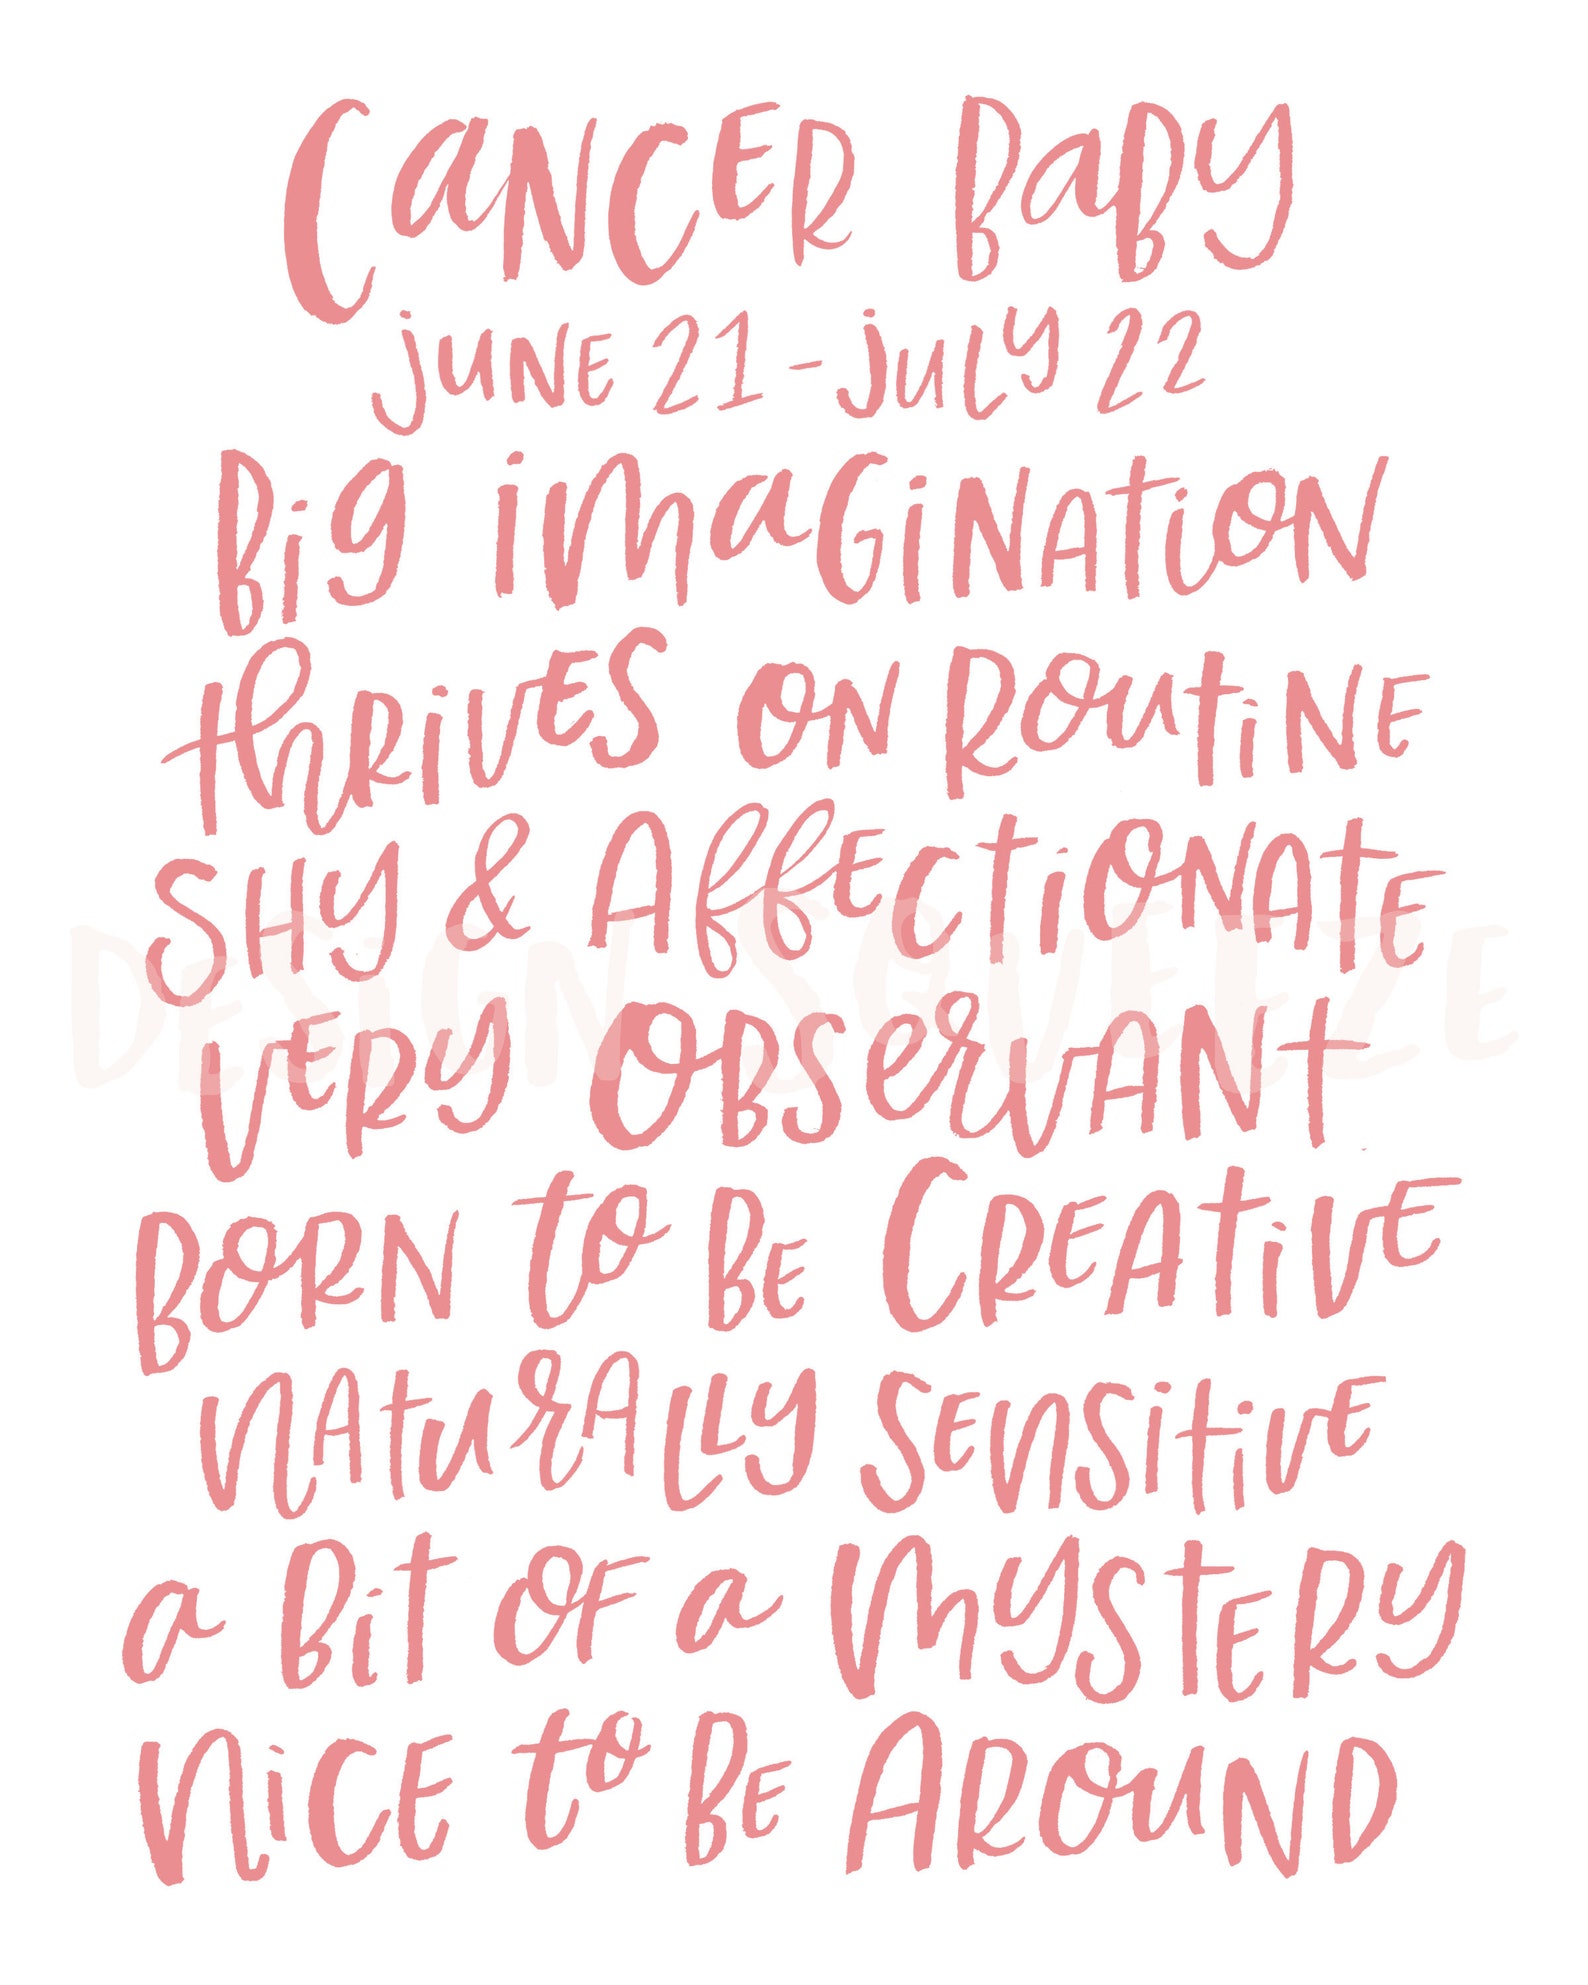 Cancer Baby
June 21 - July 22
Big Imagination
Thrives on Routine
Shy & Affectionate
Design Squeeze
Very Observant
Born to be Creative
Naturally Sensitive
a Bit of a Mystery
Nice to Be Around